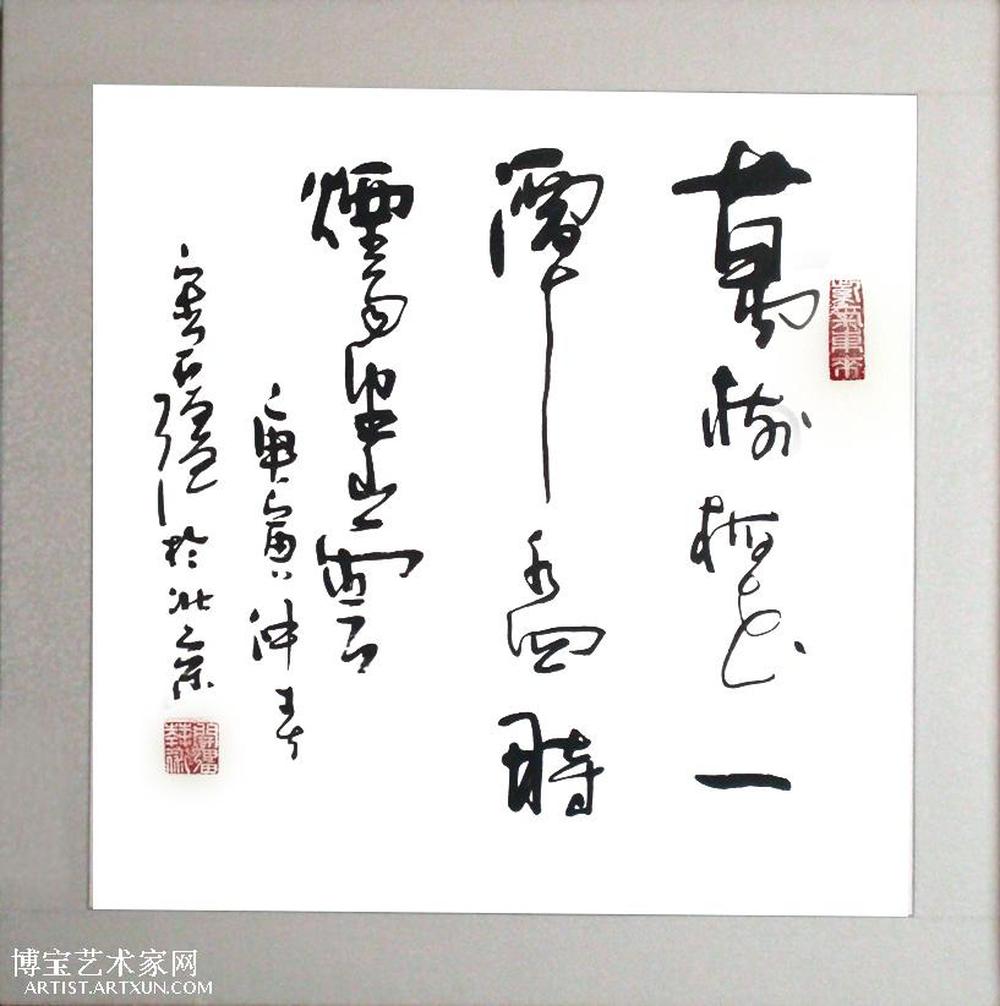 萬樹梅花一
潭水四時
煙雨山雲
庚寅仲春
於北京
博宝艺术家网
ARTIST.ARTXUN.COM